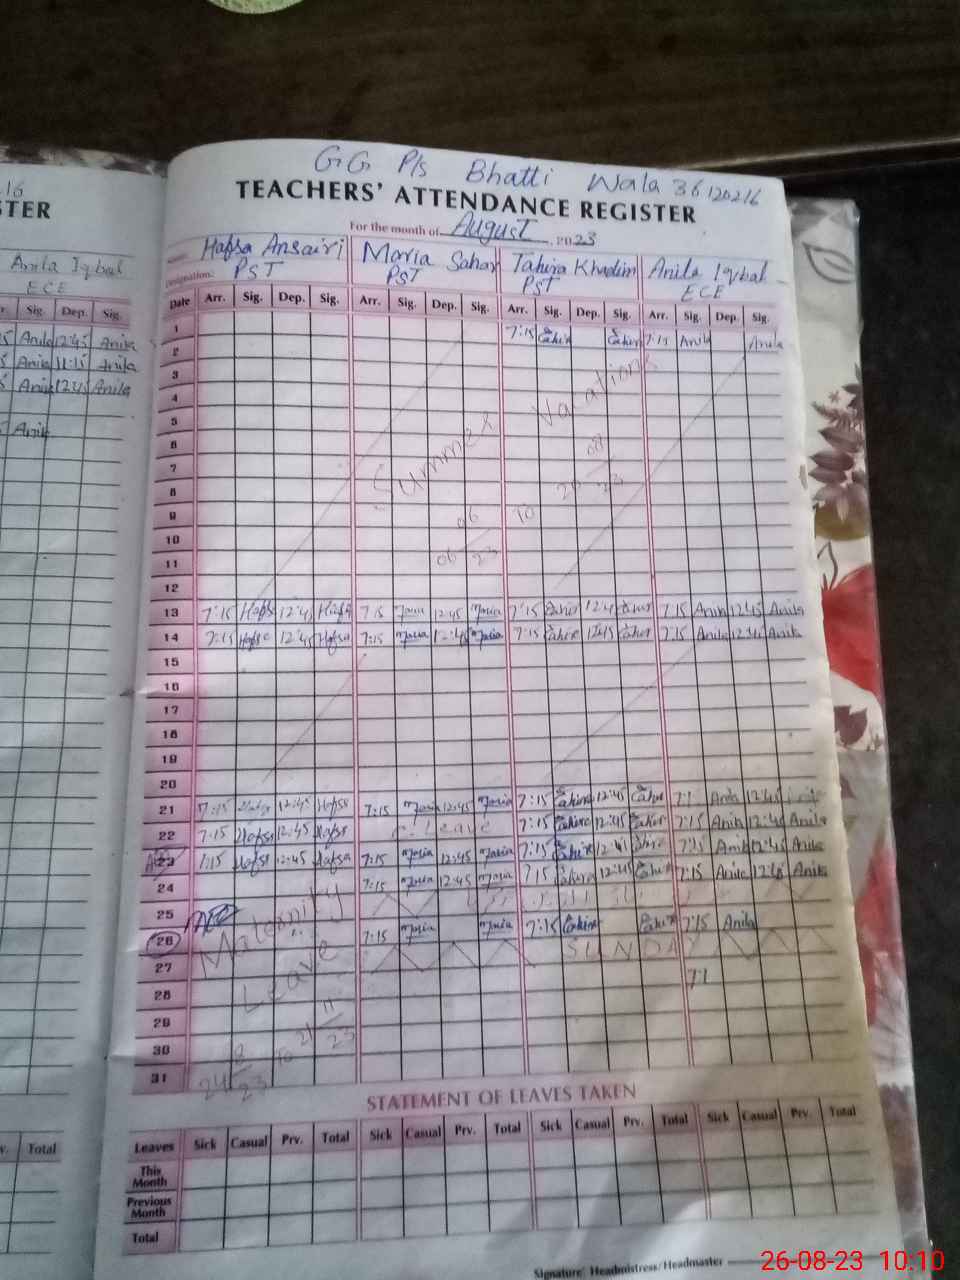 16
STER
Anila Iqbal
ECE
Sig. Dep. Sig.
Anila 12:45 Anila
Anila 11:15 Anila
Anila 12:45 Anila
Anila
Total
GG P/s Bhatti Wala 36120216
TEACHERS' ATTENDANCE REGISTER
For the month of August, 2023
Name: Hafsa Ansairi Maria Sahar Tahira Khadim Anila Iqbal
Designation: PST PST PST ECE
Date Arr. Sig. Dep. Sig. Arr. Sig. Dep. Sig. Arr. Sig. Dep. Sig. Arr. Sig. Dep. Sig.
1 7:15 7:15 Anila Anila
2
3
4
5
6
7
8
9
10
11
12
Summer Vacations
06 06 23 TO 20 08 23
13 7:15 Hafsa 12:45 Hafsa 7:15 Maria 12:45 Maria 7:15 12:45 7:15 Anila 12:45 Anila
14 7:15 Hafsa 12:45 Hafsa 7:15 Maria 12:45 Maria 7:15 12:45 7:15 Anila 12:45 Anila
15
16
17
18
19
20
21 7:15 Hafsa 12:45 Hafsa 7:15 Maria 12:45 Maria 7:15 12:45 Anila 12:45
22 7:15 Hafsa 12:45 Hafsa C. Leave 7:15 12:45 7:15 Anila 12:45 Anila
23 7:15 Hafsa 12:45 Hafsa 7:15 Maria 12:45 Maria 7:15 12:45 7:15 Anila 12:45 Anila
24 7:15 Maria 12:45 Maria 7:15 12:45 7:15 Anila Anila
25
26 7:15 Maria Maria 7:15 7:15 Anila
27 SUNDAY
28
29
30
31
Maternity Leave
24 8 23 To 21 11 23
STATEMENT OF LEAVES TAKEN
Leaves Sick Casual Prv. Total Sick Casual Prv. Total Sick Casual Prv. Total Sick Casual Prv. Total
This Month
Previous Month
Total
Signature: Headmistress/Headmaster
26-08-23 10:10